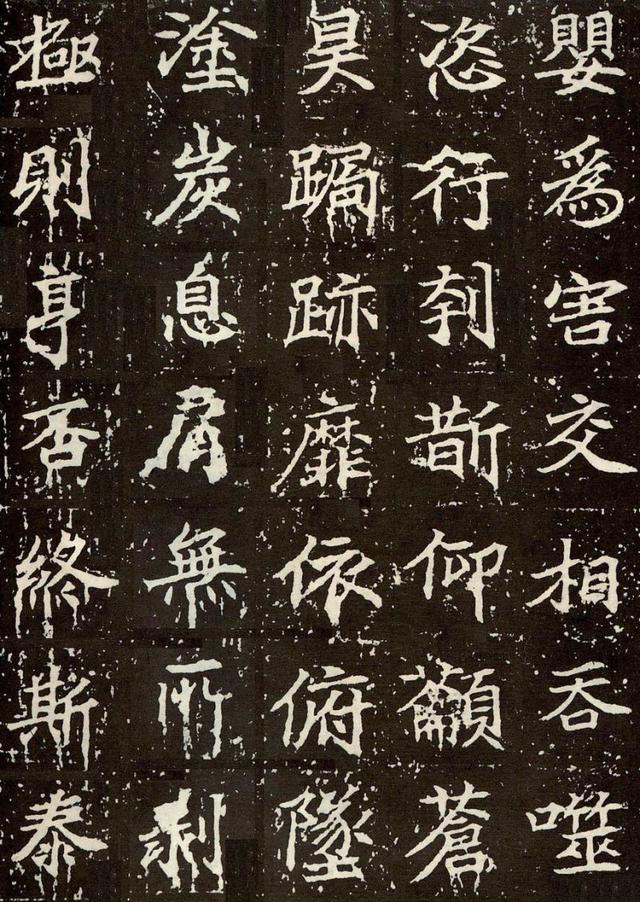 嬰爲害交相吞噬
恣行刳斮仰籲蒼
昊跼跡靡依俯墜
塗炭息肩無所剝
極則亨否終斯泰